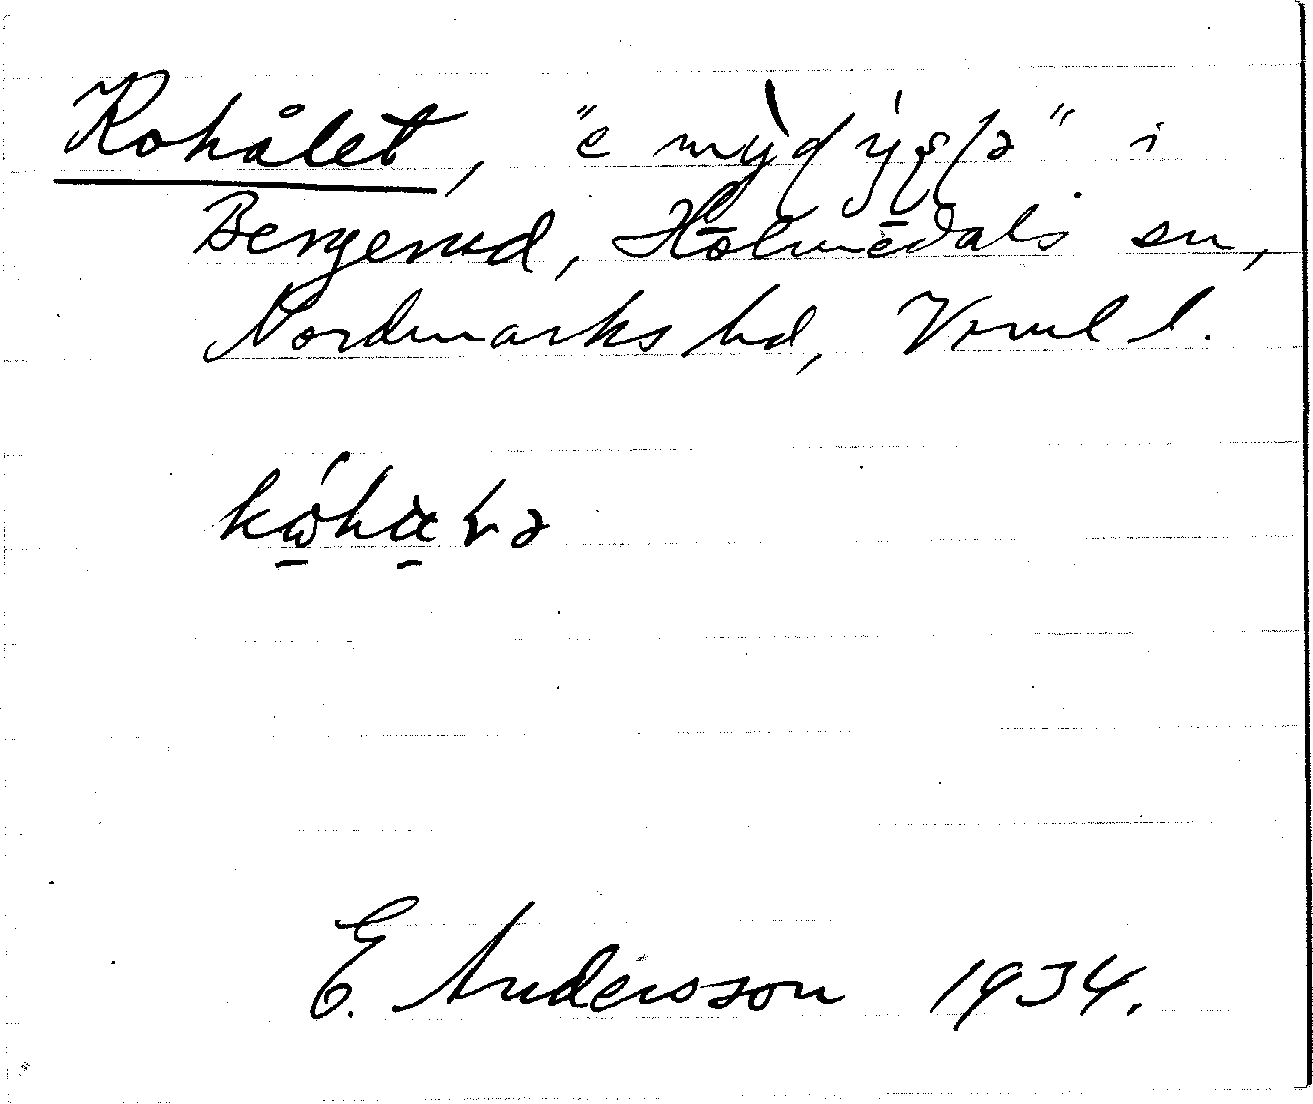 Kohålet, "e i
Bergerud, Holmedals sn,
Nordmarks hd, Verml l.
E. Andersson 1934.